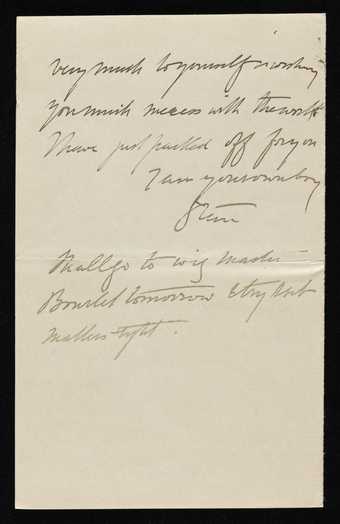 very much to yourself & wishing
you much success with the work
I have just packed off for you
I am your own boy
Shall go to wig master
tomorrow & try & set
matters right.